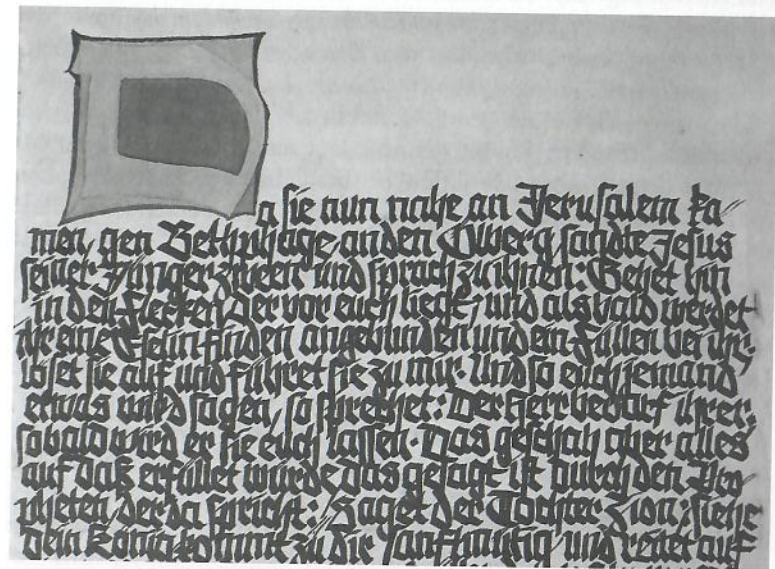 Da sie nun nahe an Jerusalem ka⸗
men, gen Bethphage an den Ölberg, sandte Jesus
seiner Jünger zween und sprach zu ihnen: Gehet hin
in den Flecken, der vor euch liegt, und alsbald werdet
ihr eine Eselin finden angebunden und ein Füllen bei ihr;
löset sie auf und führet sie zu mir. Und so euch jemand
etwas wird sagen, so sprechet: Der Herr bedarf ihrer;
sobald wird er sie euch lassen. Das geschah aber alles
auf daß erfüllet würde das gesagt ist durch den Pro
pheten, der da spricht: Saget der Tochter Zion: siehe
dein König kommt zu dir sanftmütig und reitet auf